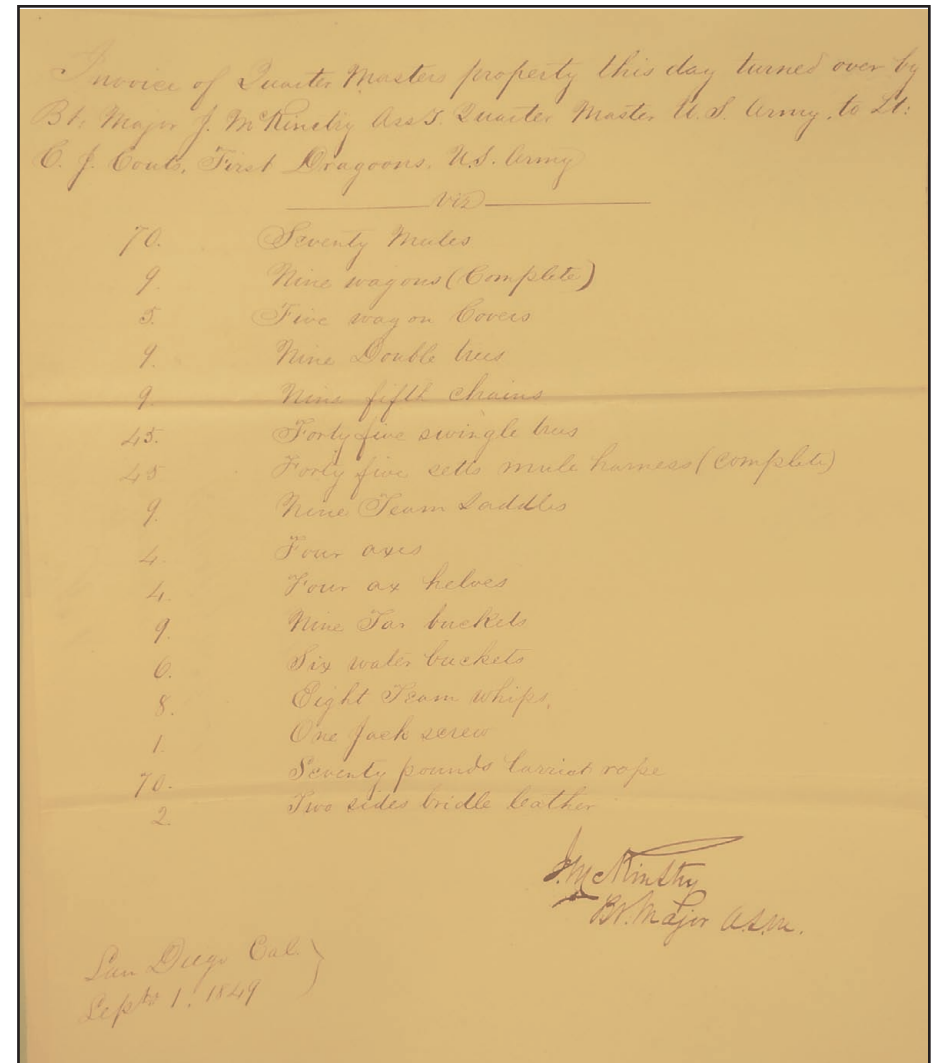 Invoice of Quarter Masters property this day turned over by
Bt. Major J. McKinstry Asst. Quarter Master U.S. Army, to Lt:
C. J. Couts, First Dragoons, U.S. Army
viz
70. Seventy Mules
9. Nine wagons (Complete)
5. Five wagon Covers
9. Nine Double trees
9. Nine fifth chains
45. Forty five swingle trees
45 Forty five setts mule harness (complete)
9. Nine Team Saddles
4. Four axes
4. Four ax helves
9. Nine Tar buckets
6. Six water buckets
8. Eight Team whips,
1. One Jack screw
70. Seventy pounds Larriat rope
2. Two sides bridle leather
J. McKinstry
Bt. Major A.Q.M.
San Diego Cal.
Septr 1. 1849